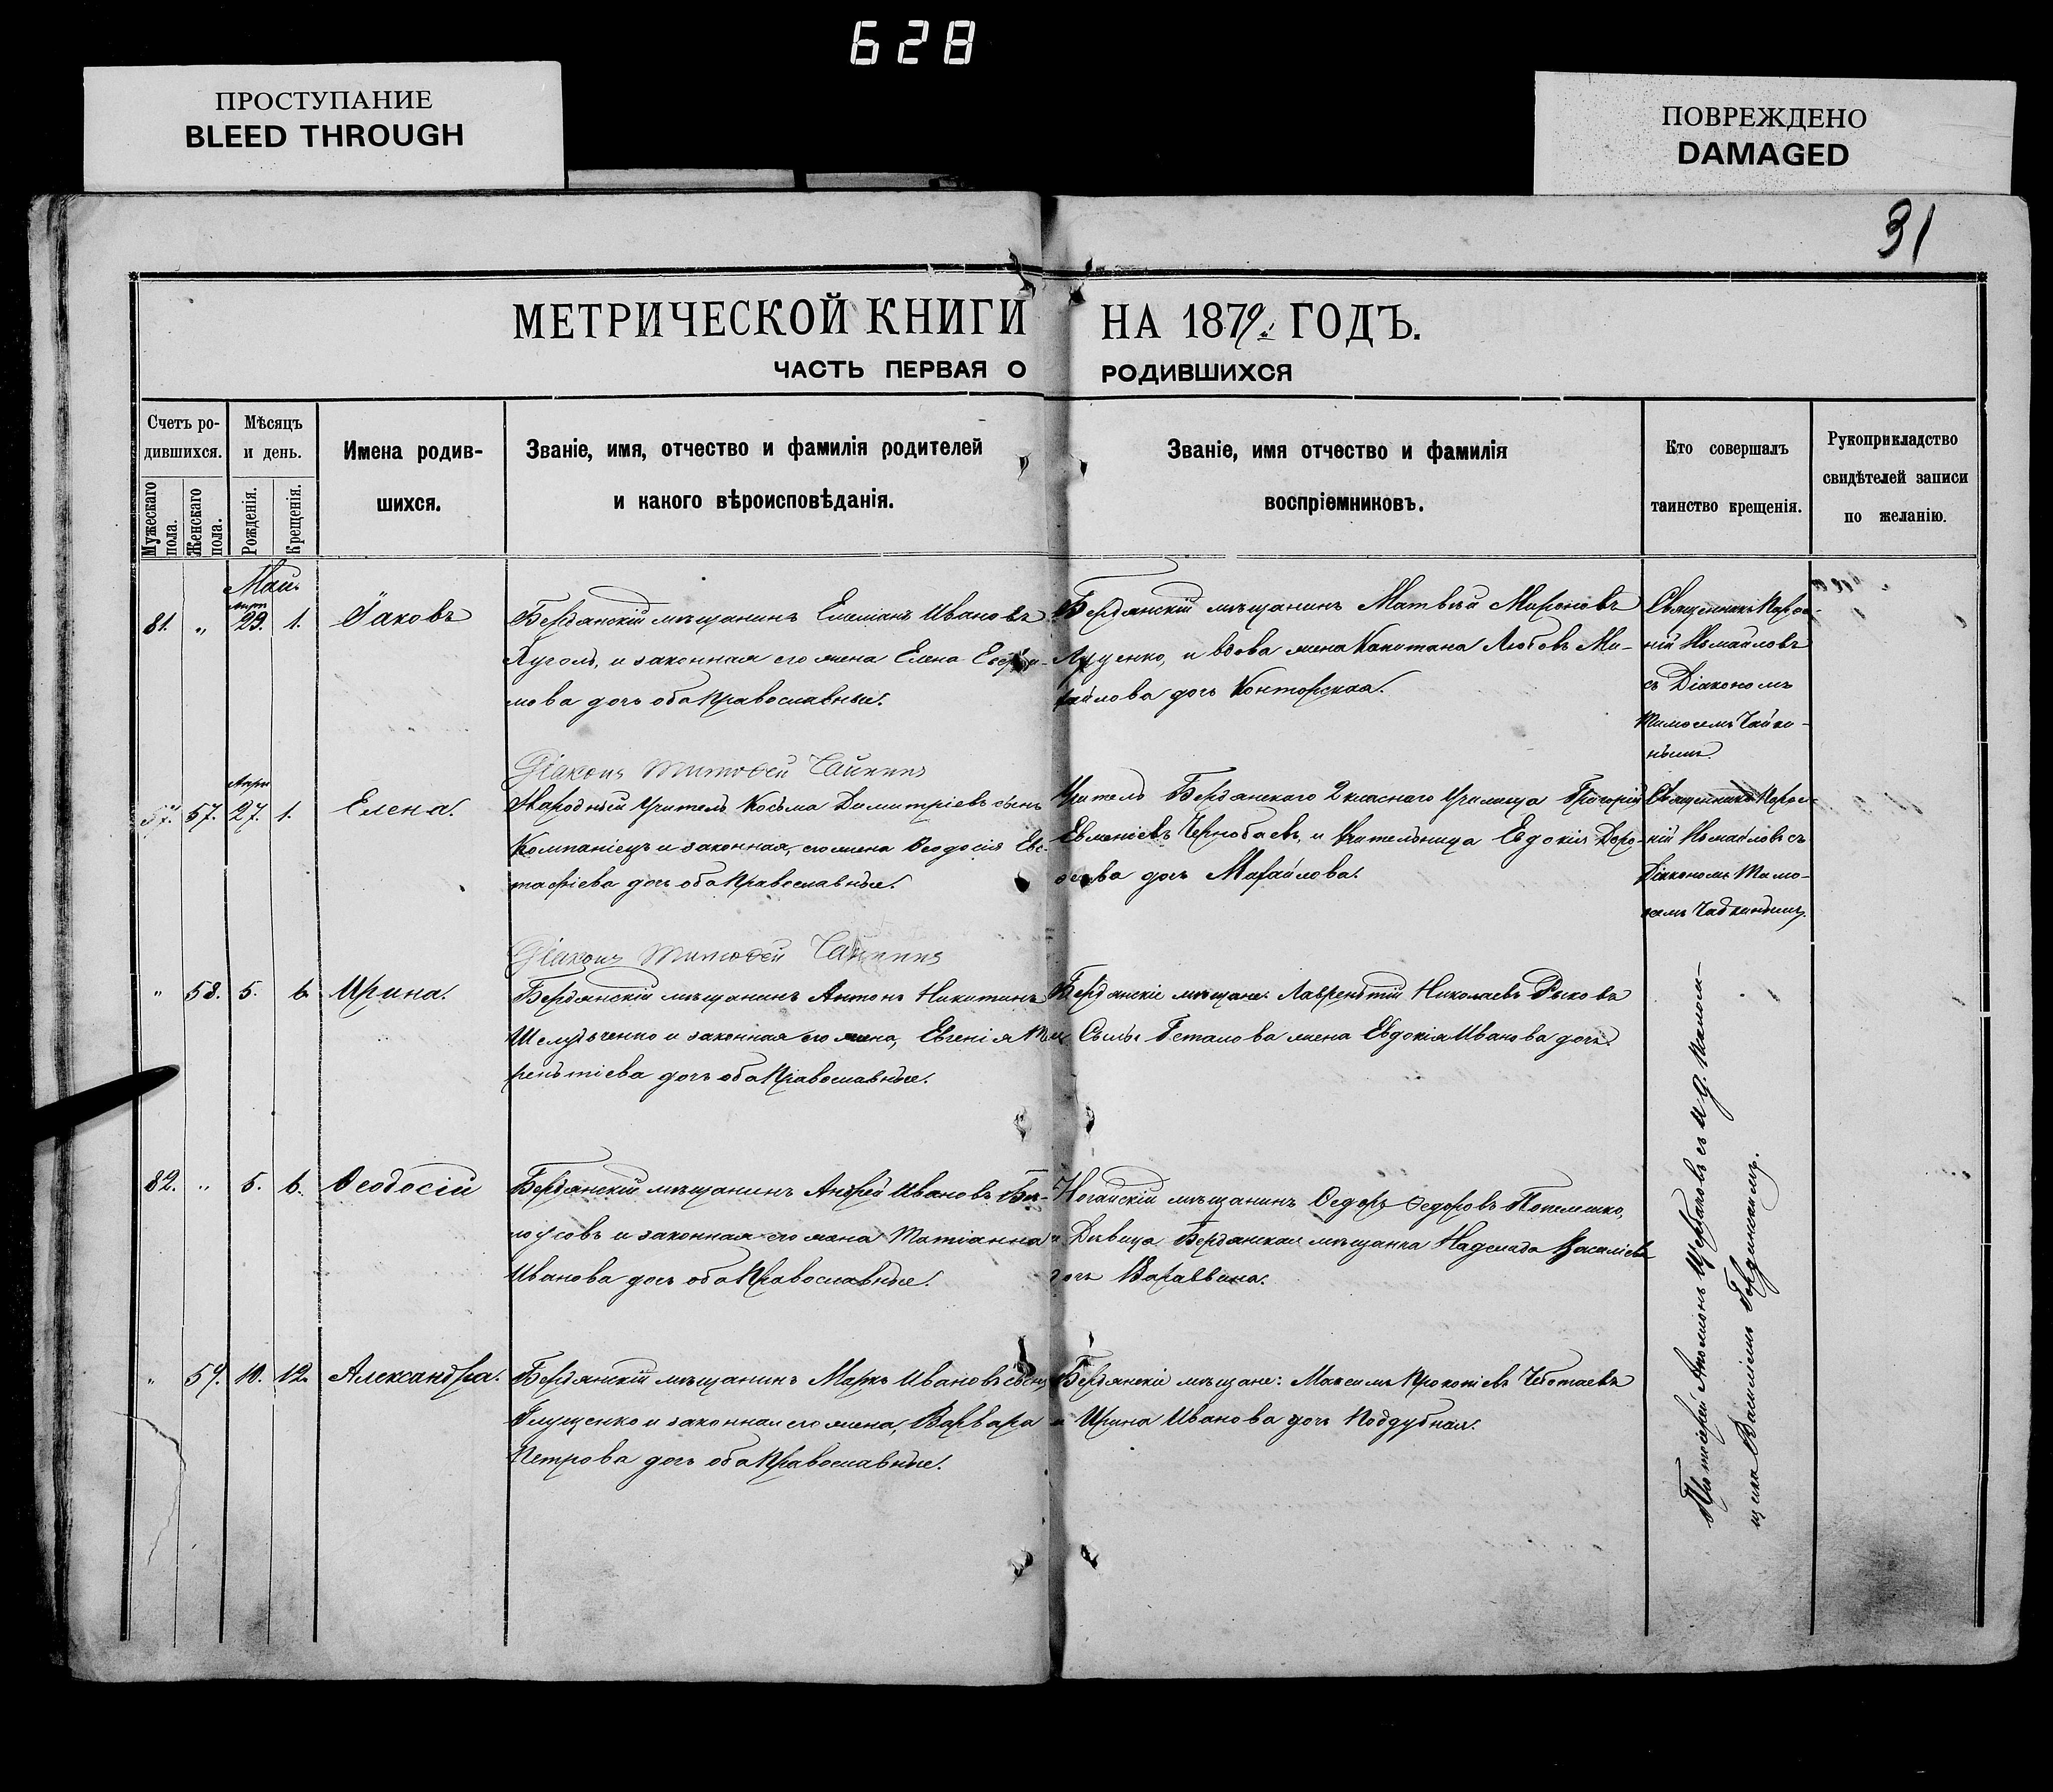 628
ПРОСТУПАНИЕ
BLEED THROUGH
ПОВРЕЖДЕНО
DAMAGED
31
МЕТРИЧЕСКОЙ КНИГИ НА 1879. ГОДЪ.
ЧАСТЬ ПЕРВАЯ О РОДИВШИХСЯ
Счетъ ро-
дившихся.
Мужескаго пола.
Женскаго пола.
Мѣсяцъ
и день.
Рожденія.
Крещенія.
Имена родив-
шихся.
Званіе, имя, отчество и фамилія родителей
и какого вѣроисповѣданія.
Званіе, имя отчество и фамилія
воспріемниковъ.
Кто совершалъ
таинство крещенія.
Рукоприкладство
свидѣтелей записи
по желанію.
Май.
81. " 29. 1. Іаковъ
Бердянскій мѣщанинъ Емеліанъ Ивановъ
и законная его жена Елена
мова дочь оба Православные.
Бердянскій мѣщанинъ Матвѣй Мироновъ
Луценко, и вдова жена Капитана Любовь Ми-
хайлова дочь Конторская.
Священникъ
Измаиловъ
съ Діакономъ
Діаконъ Тимофей Чайкинъ
57. 27. 1. Елена.
Народный Учитель Косьма Димитріевъ сынъ
Компаніецъ и законная, его жена Ѳеодосія Евс-
тафіева дочь оба Православные.
Учитель Бердянскаго 2 класнаго Училища Григорій
Евменіевъ Чернобаевъ, и Учительница Евдокія Доро-
дочь Михайлова.
Священникъ
Измаиловъ съ
Діакономъ Тимо-
Діаконъ Тимофей Чайкинъ
" 58. 5. 6. Ирина.
Бердянскій мѣщанинъ Антонъ Никитинъ
Шелудьченко и законная его жена, Евгенія
рентіева дочь оба Православные.
Бердянскіе мѣщане: Лаврентій Николаевъ Рыковъ
жена Евдокія Иванова дочь.
82. " 5. 6. Ѳеодосій
Бердянскій мѣщанинъ Андрей Ивановъ Бѣ-
лоусовъ и законная его жена Татіанна
Иванова дочь оба Православные.
Ногайскій мѣщанинъ Ѳедоръ Ѳедоровъ
и Дѣвица Бердянская мѣщанка Надежда Василіева
дочь Вараввина.
" 59. 10. 12. Александра.
Бердянскій мѣщанинъ Маркъ Ивановъ сынъ
Глущенко и законная его жена, Варвара
Петрова дочь оба Православные.
Бердянскіе мѣщане: Максимъ Прокопіевъ Чеботаевъ
и Ирина Иванова дочь Поддубная.
Протоіерей Щербаковъ съ И. д. Псалом-
щика Василіемъ